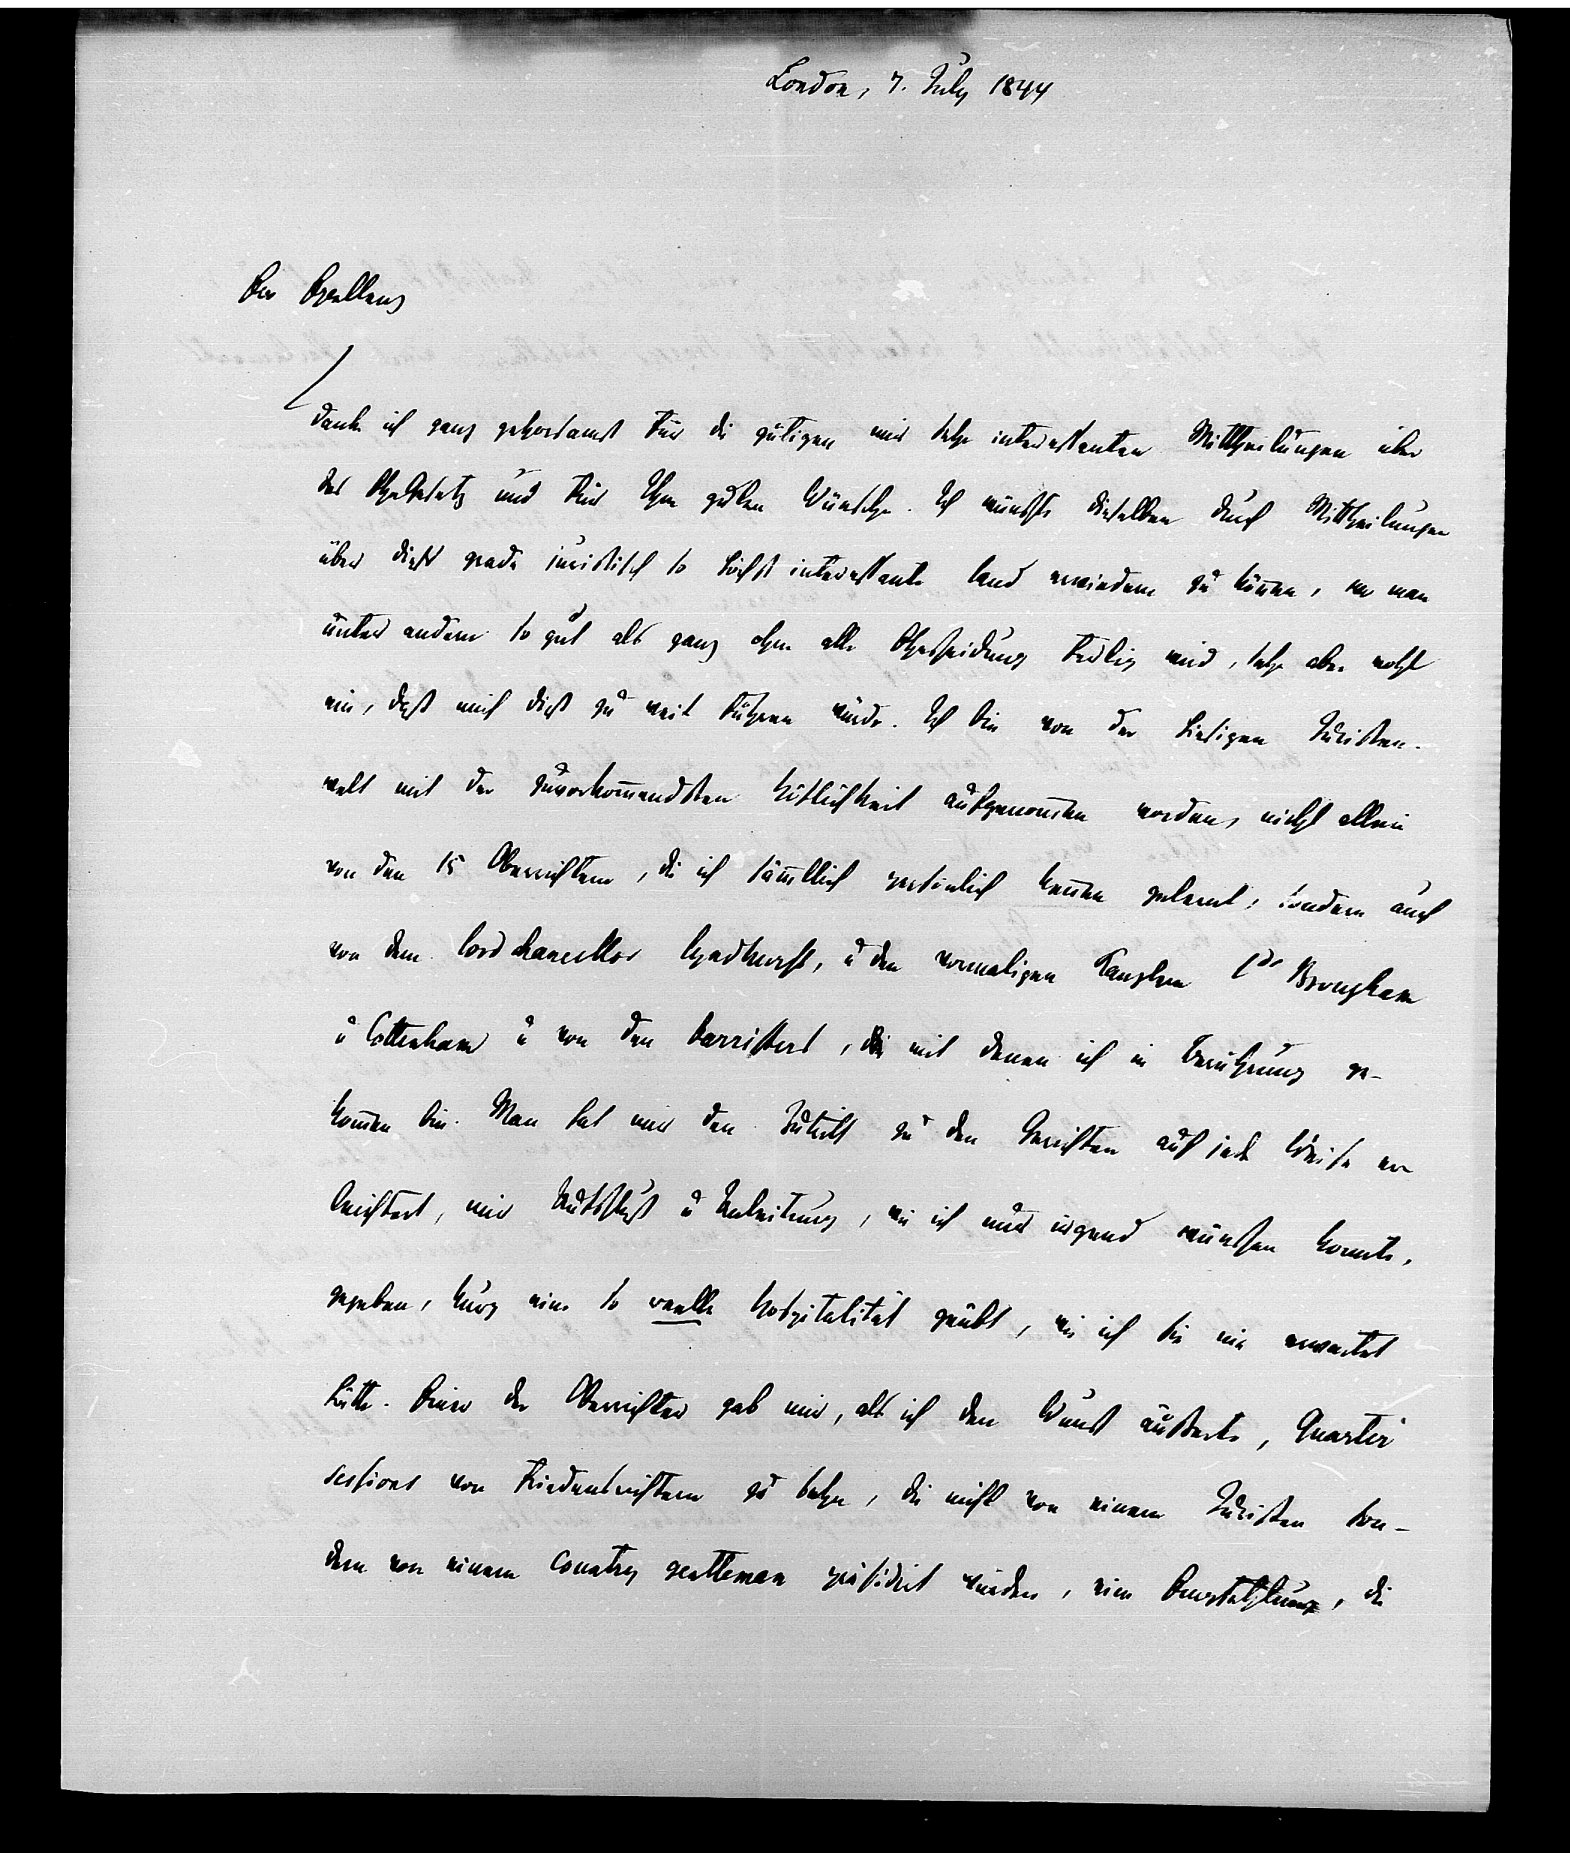 London, 7. July 1844
Ew Excellenz
danke ich ganz gehorsamst für die gütigen mir sehr interessanten Mittheilungen über
das Ehegesetz und für Ihre guten Wünsche. Ich wünschte dieselben durch Mittheilungen
über dieses grade juristisch so höchst interessante Land erwiedern zu können, wo man
unter andern so gut als ganz ohne alle Ehescheidung fertig wird, sehe aber wohl
ein, daß mich dieß zu weit führen würde. Ich bin von der hiesigen Juristen-
welt mit der zuvorkom̄endsten Höflichkeit aufgenom̄en worden, nicht allein
von den 15 Oberrichtern, die ich säm̄tlich persönlich ken̄en gelernt, sondern auch
von dem Lord Chancellor Lyndhurst, u den vormaligen Kanzlern Lds Brougham
u Cottenham u von den barristers, mit denen ich in Berührung ge-
kom̄en bin. Man hat mir den Zutritt zu den Gerichten auf jede Weise er
leichtert, mir Aufschluß u Anleitung, wie ich nur irgend wünschen konnte,
gegeben, kurz eine so reelle Hospitalität geübt, wie ich sie nie erwartet
hätte. Einer der Oberrichter gab mir, als ich den Wunsch äußerte, Quarter
sessions von Friedensrichtern zu sehen, die nicht von einem Juristen son-
dern von einem Country gentleman präsidirt würden, eine Empfehlung, die